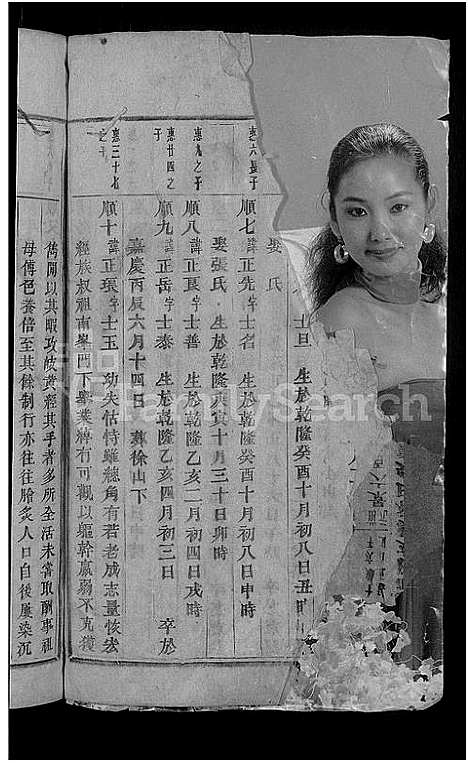 士旦 生於乾隆癸酉十月初八日丑時
娶 氏
惠六長子
順七 諱正先 字士名 生於乾隆癸酉十月初八日申時
娶張氏 生於乾隆丙寅十月三十日卯時
惠九之子
順八 諱正 字士善 生於乾隆乙亥二月初四日戌時
惠廿四之子
順九 諱正岳 字士泰 生於乾隆乙亥四月初三日 卒於
嘉慶丙辰六月十四日 葬徐山下
惠三十七之子
順十 諱正 字士玉 幼失怙恃雖總角有若老成志量恢宏
經族叔祖南 門下舉業 有可觀以軀幹羸弱不克獲
儁閒以其暇攻岐黃經其手者多所全活未嘗取酬事祖
母傅邑養倍至其餘制行亦往往膾炙人口自後屢染沉
FamilySearch